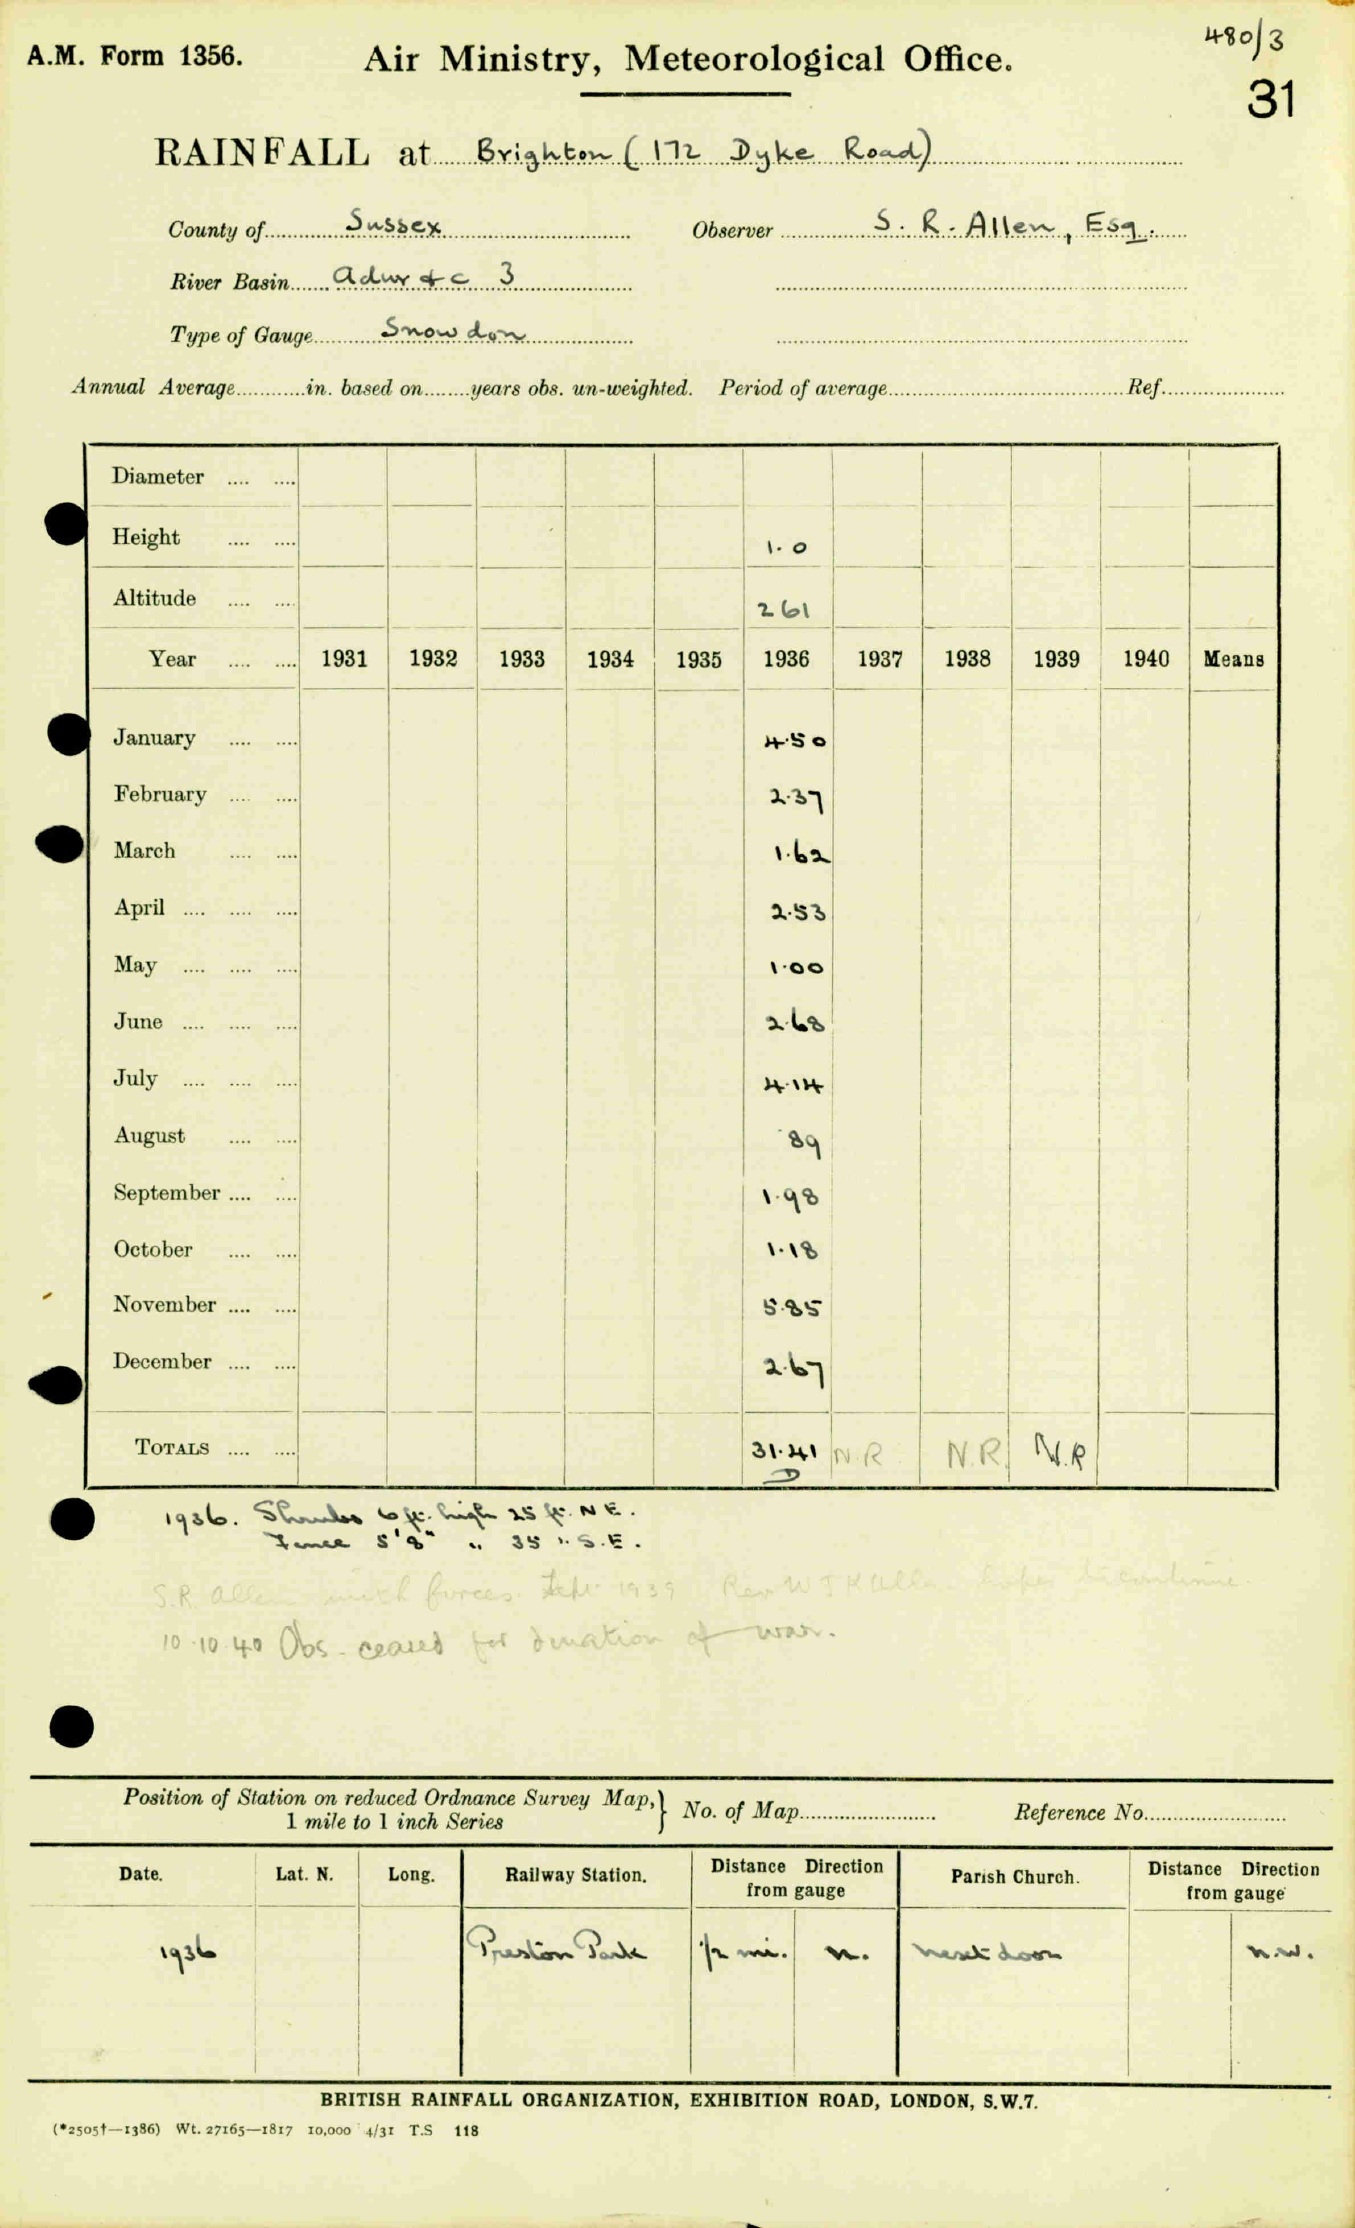 480/3
A.M. Form 1356. Air Ministry, Meteorological Office.
31
RAINFALL at Brighton (172 Dyke Road)
County of Sussex Observer S. R. Allen, Esq.
River Basin Adur & c 3
Type of Gauge Snowdon
Annual Average in. based on years obs. un-weighted. Period of average Ref.
Diameter
Height 1.0
Altitude 261
Year 1931 1932 1933 1934 1935 1936 1937 1938 1939 1940 Means
January 4.50
February 2.37
March 1.62
April 2.53
May 1.00
June 2.68
July 4.14
August .89
September 1.98
October 1.18
November 5.85
December 2.67
TOTALS 31.41 N.R. N.R. N.R
D
1936. Shrubs 6 ft. high 25 ft. NE.
Fence 5'8" " 35 ". S.E.
S.R. Allen with forces. Sept 1939 Rev W J K hopes to continue
10.10.40 Obs. ceased for duration of war.
Position of Station on reduced Ordnance Survey Map, } No. of Map Reference No.
1 mile to 1 inch Series
Date. Lat. N. Long. Railway Station. Distance Direction from gauge Parish Church. Distance Direction from gauge
1936 Preston Park 1/2 mi. N. next door N.W.
BRITISH RAINFALL ORGANIZATION, EXHIBITION ROAD, LONDON, S.W.7.
(*2505†—1386) Wt. 27165—1817 10,000 4/31 T.S 118